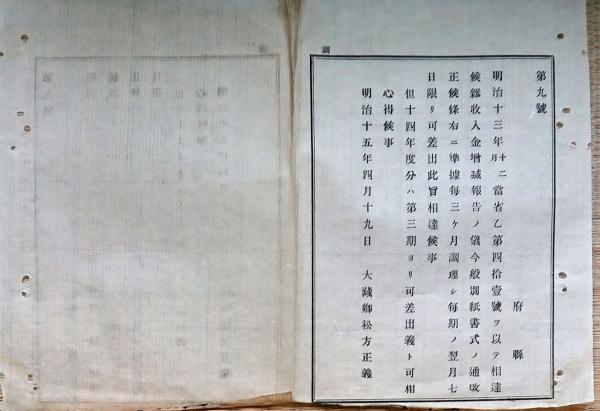 第九號
府縣
明治十三年十二月當省乙第四拾壹號ヲ以テ相達
候雜收入金增減報告ノ儀今般別紙書式ノ通改
正候條右ニ準據每三ケ月調理シ每期ノ翌月七
日限リ可差出此旨相達候事
但十四年度分ハ第三期ヨリ可差出義ト可相
心得候事
明治十五年四月十九日 大藏卿松方正義